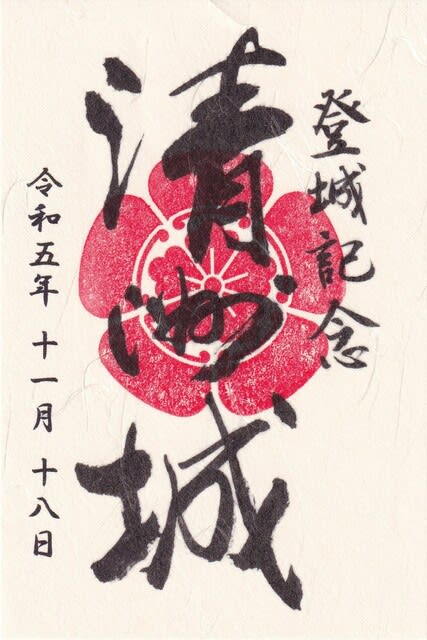 登城記念
清洲城
令和五年 十一月 十八日